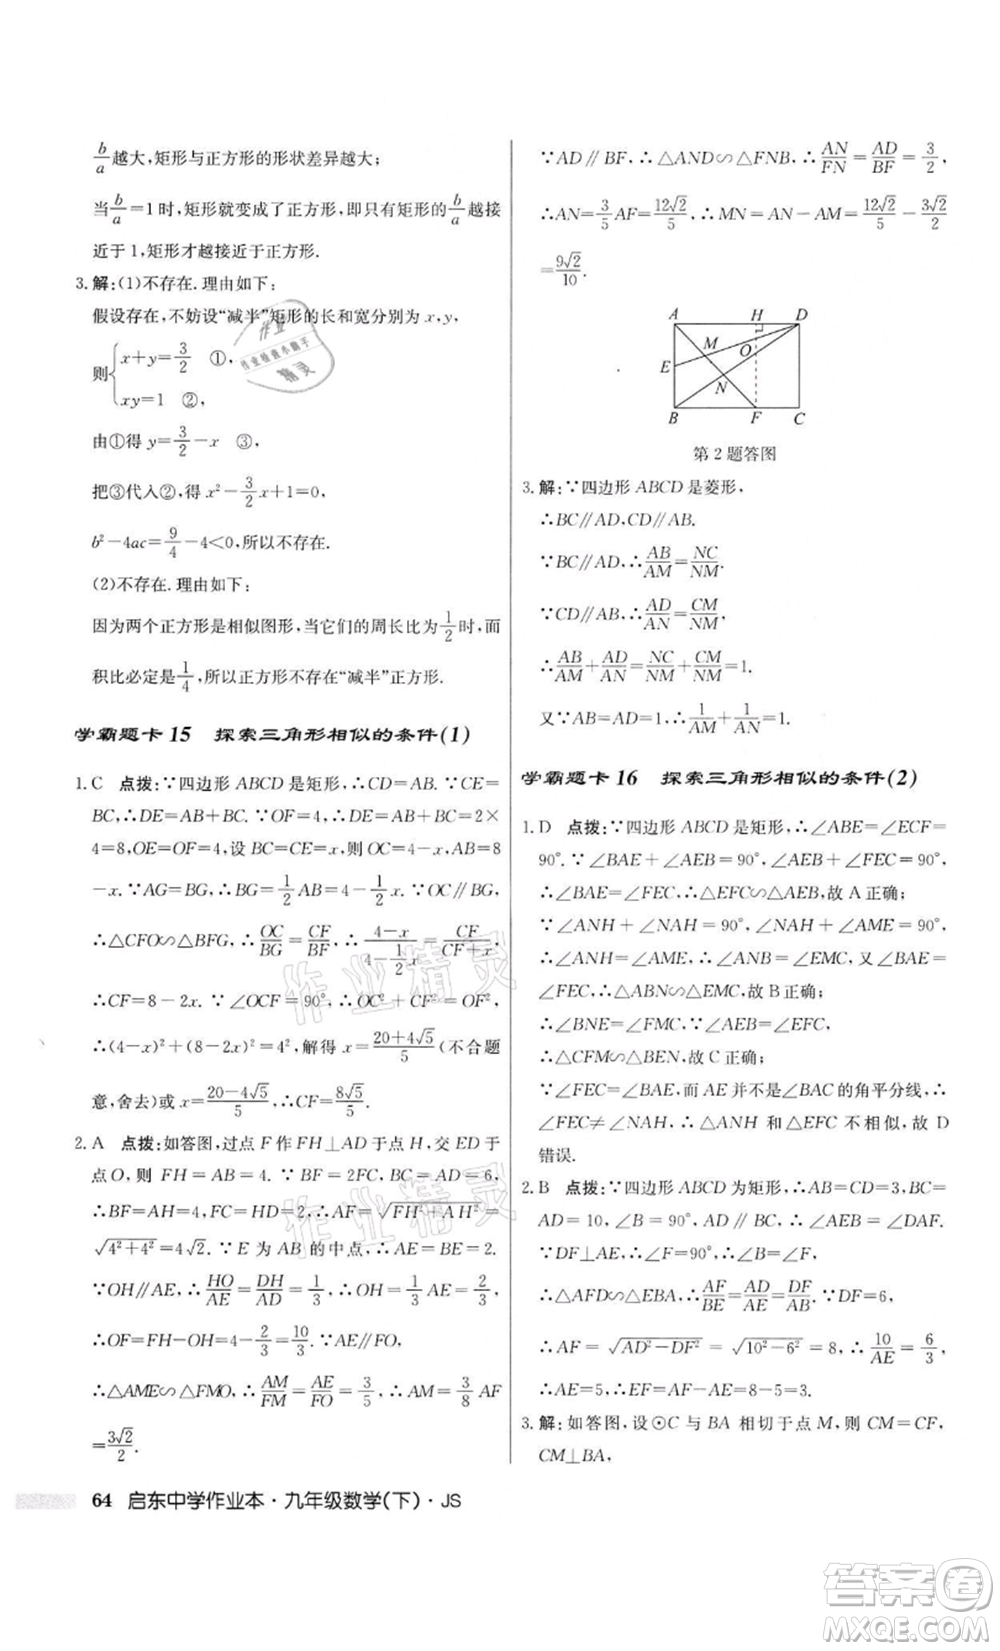 b/a越大，矩形与正方形的形状差异越大；
当b/a=1时，矩形就变成了正方形，即只有矩形的b/a越接
近于1，矩形才越接近于正方形.
3. 解：(1)不存在. 理由如下：
假设存在，不妨设“减半”矩形的长和宽分别为x，y，
则{x+y=3/2 ②，
xy=1 ②，
由①得 y=3/2-x ③，
把③代入②，得x²-3/2x+1=0，
b²-4ac=9/4-4<0，所以不存在.
(2)不存在. 理由如下：
因为两个正方形是相似图形，当它们的周长比为1/2时，面
积比必定是1/4，所以正方形不存在“减半”正方形.
学霸题卡 15 探索三角形相似的条件(1)
1. C 点拨：∵四边形ABCD是矩形，∴OC⊥AB. ∵CE=
BC，∴DE=AB+BC. ∵OF=4，∴DE=AB+BC=2×
4=8，OE=OF=4，设BC=CE=x，则OC=4-x，AB=8
-x. ∵AG=BG，∴BG=1/2AB=4-1/2x. ∵OC∥BG，
∴△CFO∽△BFG，∴OC/BG=CF/BF，∴(4-x)/(4-1/2x)=CF/(CF+x)，
∴CF=8-2x. ∵∠OCF=90°，∴OC²+CF²=OF²，
∴(4-x)²+(8-2x)²=4²，解得x=(20+4√5)/5(不合题
意，舍去)或x=(20-4√5)/5，∴CF=8√5/5.
2. A 点拨：如答图，过点F作FH⊥AD于点H，交ED于
点O，则 FH=AB=4. ∵BF=2FC，BC=AD=6，
∴BF=AH=4，FC=HD=2，∴AF=√(FH²+AH²)=
√(4²+4²)=4√2. ∵E 为 AB 的中点，∴AE=BE=2.
∵OH∥AE，∴HO/AE=DH/AD=1/3，∴OH=1/3AE=2/3，
∴OF=FH-OH=4-2/3=10/3. ∵AE∥FO，
∴△AME∽△FMO，∴AM/FM=AE/FO=3/5，∴AM=3/8AF
=3√2/2.
∵AD∥BF，∴△AND∽△FNB，∴AN/FN=AD/BF=3/2，
∴AN=3/5AF=12√2/5，∴MN=AN-AM=12√2/5-3√2/2
=9√2/10.
A H D
M
O
E
N
B F C
第2题答图
3. 解：∵四边形ABCD是菱形，
∴BC∥AD，CD∥AB.
∵BC∥AD，∴AB/AM=NC/NM.
∵CD∥AB，∴AD/AN=CM/NM.
∴AB/AM+AD/AN=NC/NM+CM/NM=1.
又∵AB=AD=1，∴1/AM+1/AN=1.
学霸题卡 16 探索三角形相似的条件(2)
1. D 点拨：∵四边形ABCD是矩形，∴∠ABE=∠ECF=
90°. ∵∠BAE+∠AEB=90°，∠AEB+∠FEC=90°，
∴∠BAE=∠FEC，∴△EFC∽△AEB，故A正确；
∵∠ANH+∠NAH=90°，∠NAH+∠AME=90°，
∴∠ANH=∠AME，∴∠ANB=∠EMC，又∠BAE=
∠FEC，∴△ABN∽△EMC，故B正确；
∴∠BNE=∠FMC，∵∠AEB=∠EFC，
∴△CFM∽△BEN，故C正确；
∵∠FEC=∠BAE，而AE并不是∠BAC的角平分线，∴
∠FEC≠∠NAH，∴△ANH和△EFC不相似，故D
错误.
2. B 点拨：∵四边形ABCD为矩形，∴AB=CD=3，BC=
AD=10，∠B=90°，AD∥BC，∴∠AEB=∠DAF.
∵DF⊥AE，∴∠F=90°，∴∠B=∠F，
∴△AFD∽△EBA，∴AF/BE=AD/AE=DF/AB. ∵DF=6，
∴AF=√(AD²-DF²)=√(10²-6²)=8，∴10/AE=6/3，
∴AE=5，∴EF=AF-AE=8-5=3.
3. 解：如答图，设⊙C与BA相切于点M，则CM=CF，
CM⊥BA，
64 启东中学作业本·九年级数学(下)·JS
作业
作业检查小帮手
精灵
作业精灵
作业精灵
答案圈
MXQE.COM